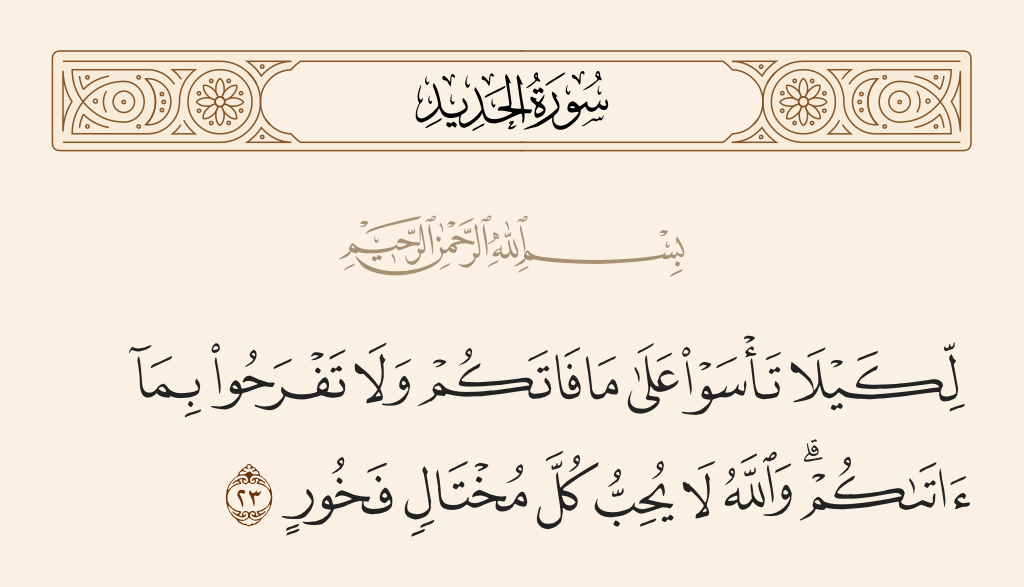 سُورَةُ الحَدِيدِ
بِسْمِ ٱللَّهِ ٱلرَّحْمَٰنِ ٱلرَّحِيمِ
لِّكَيْلَا تَأْسَوْا۟ عَلَىٰ مَا فَاتَكُمْ وَلَا تَفْرَحُوا۟ بِمَآ
ءَاتَىٰكُمْ ۗ وَٱللَّهُ لَا يُحِبُّ كُلَّ مُخْتَالٍ فَخُورٍ ٢٣